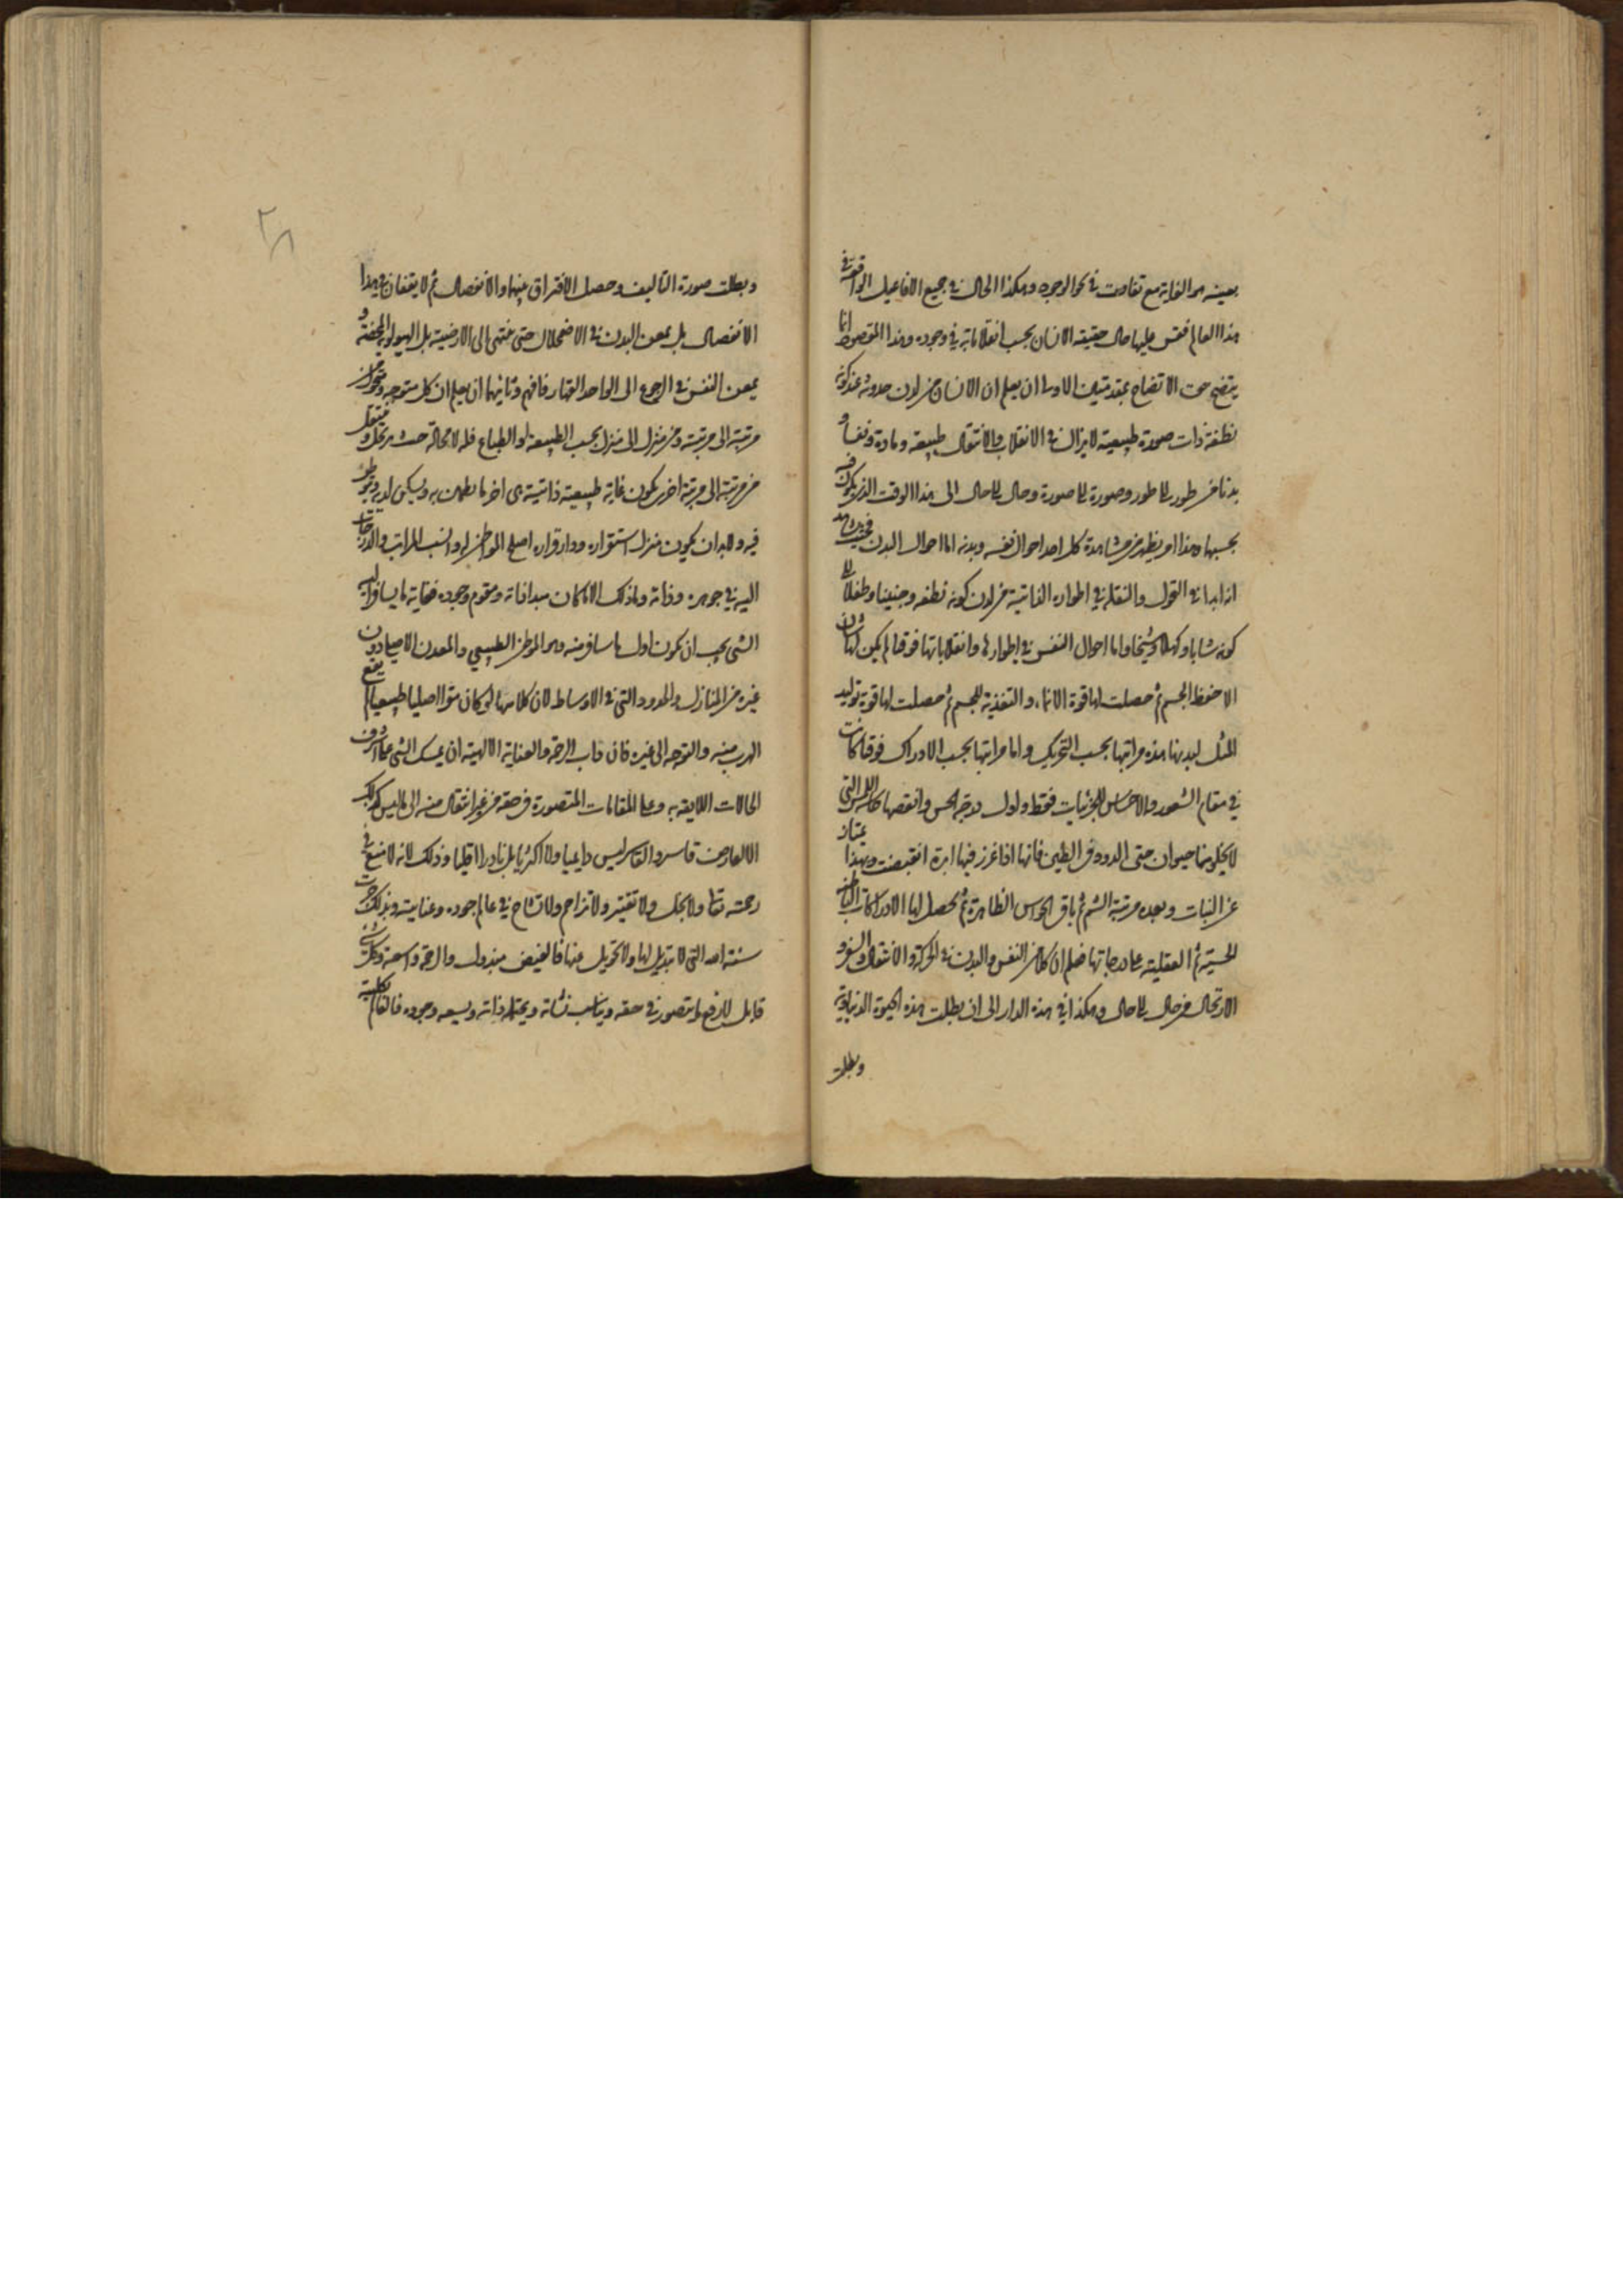 بعينه هو الغاية مع تفاوت في نحو الوجود وهكذا الحال في جميع الافاعيل الواقعة في
هذا العالم فقس عليها حال حقيقة الانسان بحسب انقلاباته في وجوده وهذا المقصود انما
يتضح حق الاتضاح بمقدمتين الاولى ان يعلم ان الانسان من لدن حدوثه عند كونه
نطفة ذات صورة طبيعية لا يزال في الانقلاب والانتقال طبيعة ومادة ونفسا و
بدنا من طور الى طور وصورة الى صورة وحال الى حال الى هذا الوقت الذي يكون فيه
بحسبها وهذا امر يظهر من مشاهدة كل احد احوال نفسه وبدنه اما احوال البدن
انه ابدا في التحول والنقلة في اطواره الذاتية من لدن كونه نطفة وجنينا وطفلا الى
كونه شابا وكهلا وشيخا واما احوال النفس في اطوارها وانقلاباتها فوقتا لم يكن لها شان
الا حفظ الجسم ثم حصلت لها قوة الانماء والتغذية للجسم ثم حصلت لها قوة توليد
المثل لبدنها هذه مراتبها بحسب التحريك واما مراتبها بحسب الادراك فوقتا كانت
في مقام الشعور والاحساس للجزئيات فقط واول درجة الحس وانقصها كاللمس التي
لا يخلو منها حيوان حتى الدود في الطين فانها اذا غرز فيها ابرة انقبضت وبهذا يمتاز
عن النبات وبعده مرتبة الشم ثم باقي الحواس الظاهرة ثم تحصل لها الادراكات الباطنة
الحسية ثم العقلية على درجاتها فعلم ان كلا من النفس والبدن في الحركة والانتقال والسفر و
الارتحال من حال الى حال وهكذا في هذه الدار الى ان بطلت هذه الحيوة الدنياوية
وبطلت
وبطلت صورة التاليف وحصل الافتراق بينها والانفصال ثم لا يقفان في هذا
الانفصال بل يمعن البدن في الاضمحلال حتى ينتهي الى الارضية بل الهيولوية المحضة و
يمعن النفس في الرجوع الى الواحد القهار فافهم وثانيهما ان يعلم ان كل متوجه ومتحرك من
مرتبة الى مرتبة ومن منزل الى منزل بحسب الطبيعة او الطباع فله لا محالة حيث يرتحل و ينتقل
من مرتبة الى مرتبة اخرى يكون غاية طبيعية ذاتية هي اخر ما يطمئن به ويسكن لديه
فيه ولابد ان يكون منزل استقراره ودار قراره اصلح المواطن له وانسب المراتب والدرجات
اليه في جوهره وذاته ولذلك الا ما كان مبدا ذاته ومقوم وجوده فغاية ما يسافر اليه
الشي يجب ان يكون اول ما سافر منه وهو الموطن الطبيعي والمعدن الاصلي دون
غيره من المنازل والحدود التي في الاوساط لان كلا منها لو كان مقرا اصليا طبيعيا لم يقع
الهرب منه والتوجه الى غيره فان داب الرحمة والعناية الالهية ان يمسك الشي على اشرف
الحالات اللايقة به وعلى المقامات المتصورة في حقه من غير انتقال منه الى ما ليس كذلك
الا لعارض قاسر والقاسر ليس دايميا ولا اكثريا بل نادرا اقليا وذلك لانه لا منع في
رحمته تعالى ولا بخل ولا تقتير ولا تزاحم ولا تشاح في عالم جوده وعنايته وبذلك جرت
سنة الله التي لا تبديل لها ولا تحويل عنها فالفيض مبذول والرحمة واسعة وكل شي
قابل لارفع ما يتصور في حقه ويناسب نشاته ويحتمله ذاته ويسعه وجوده فالعالم بكليته